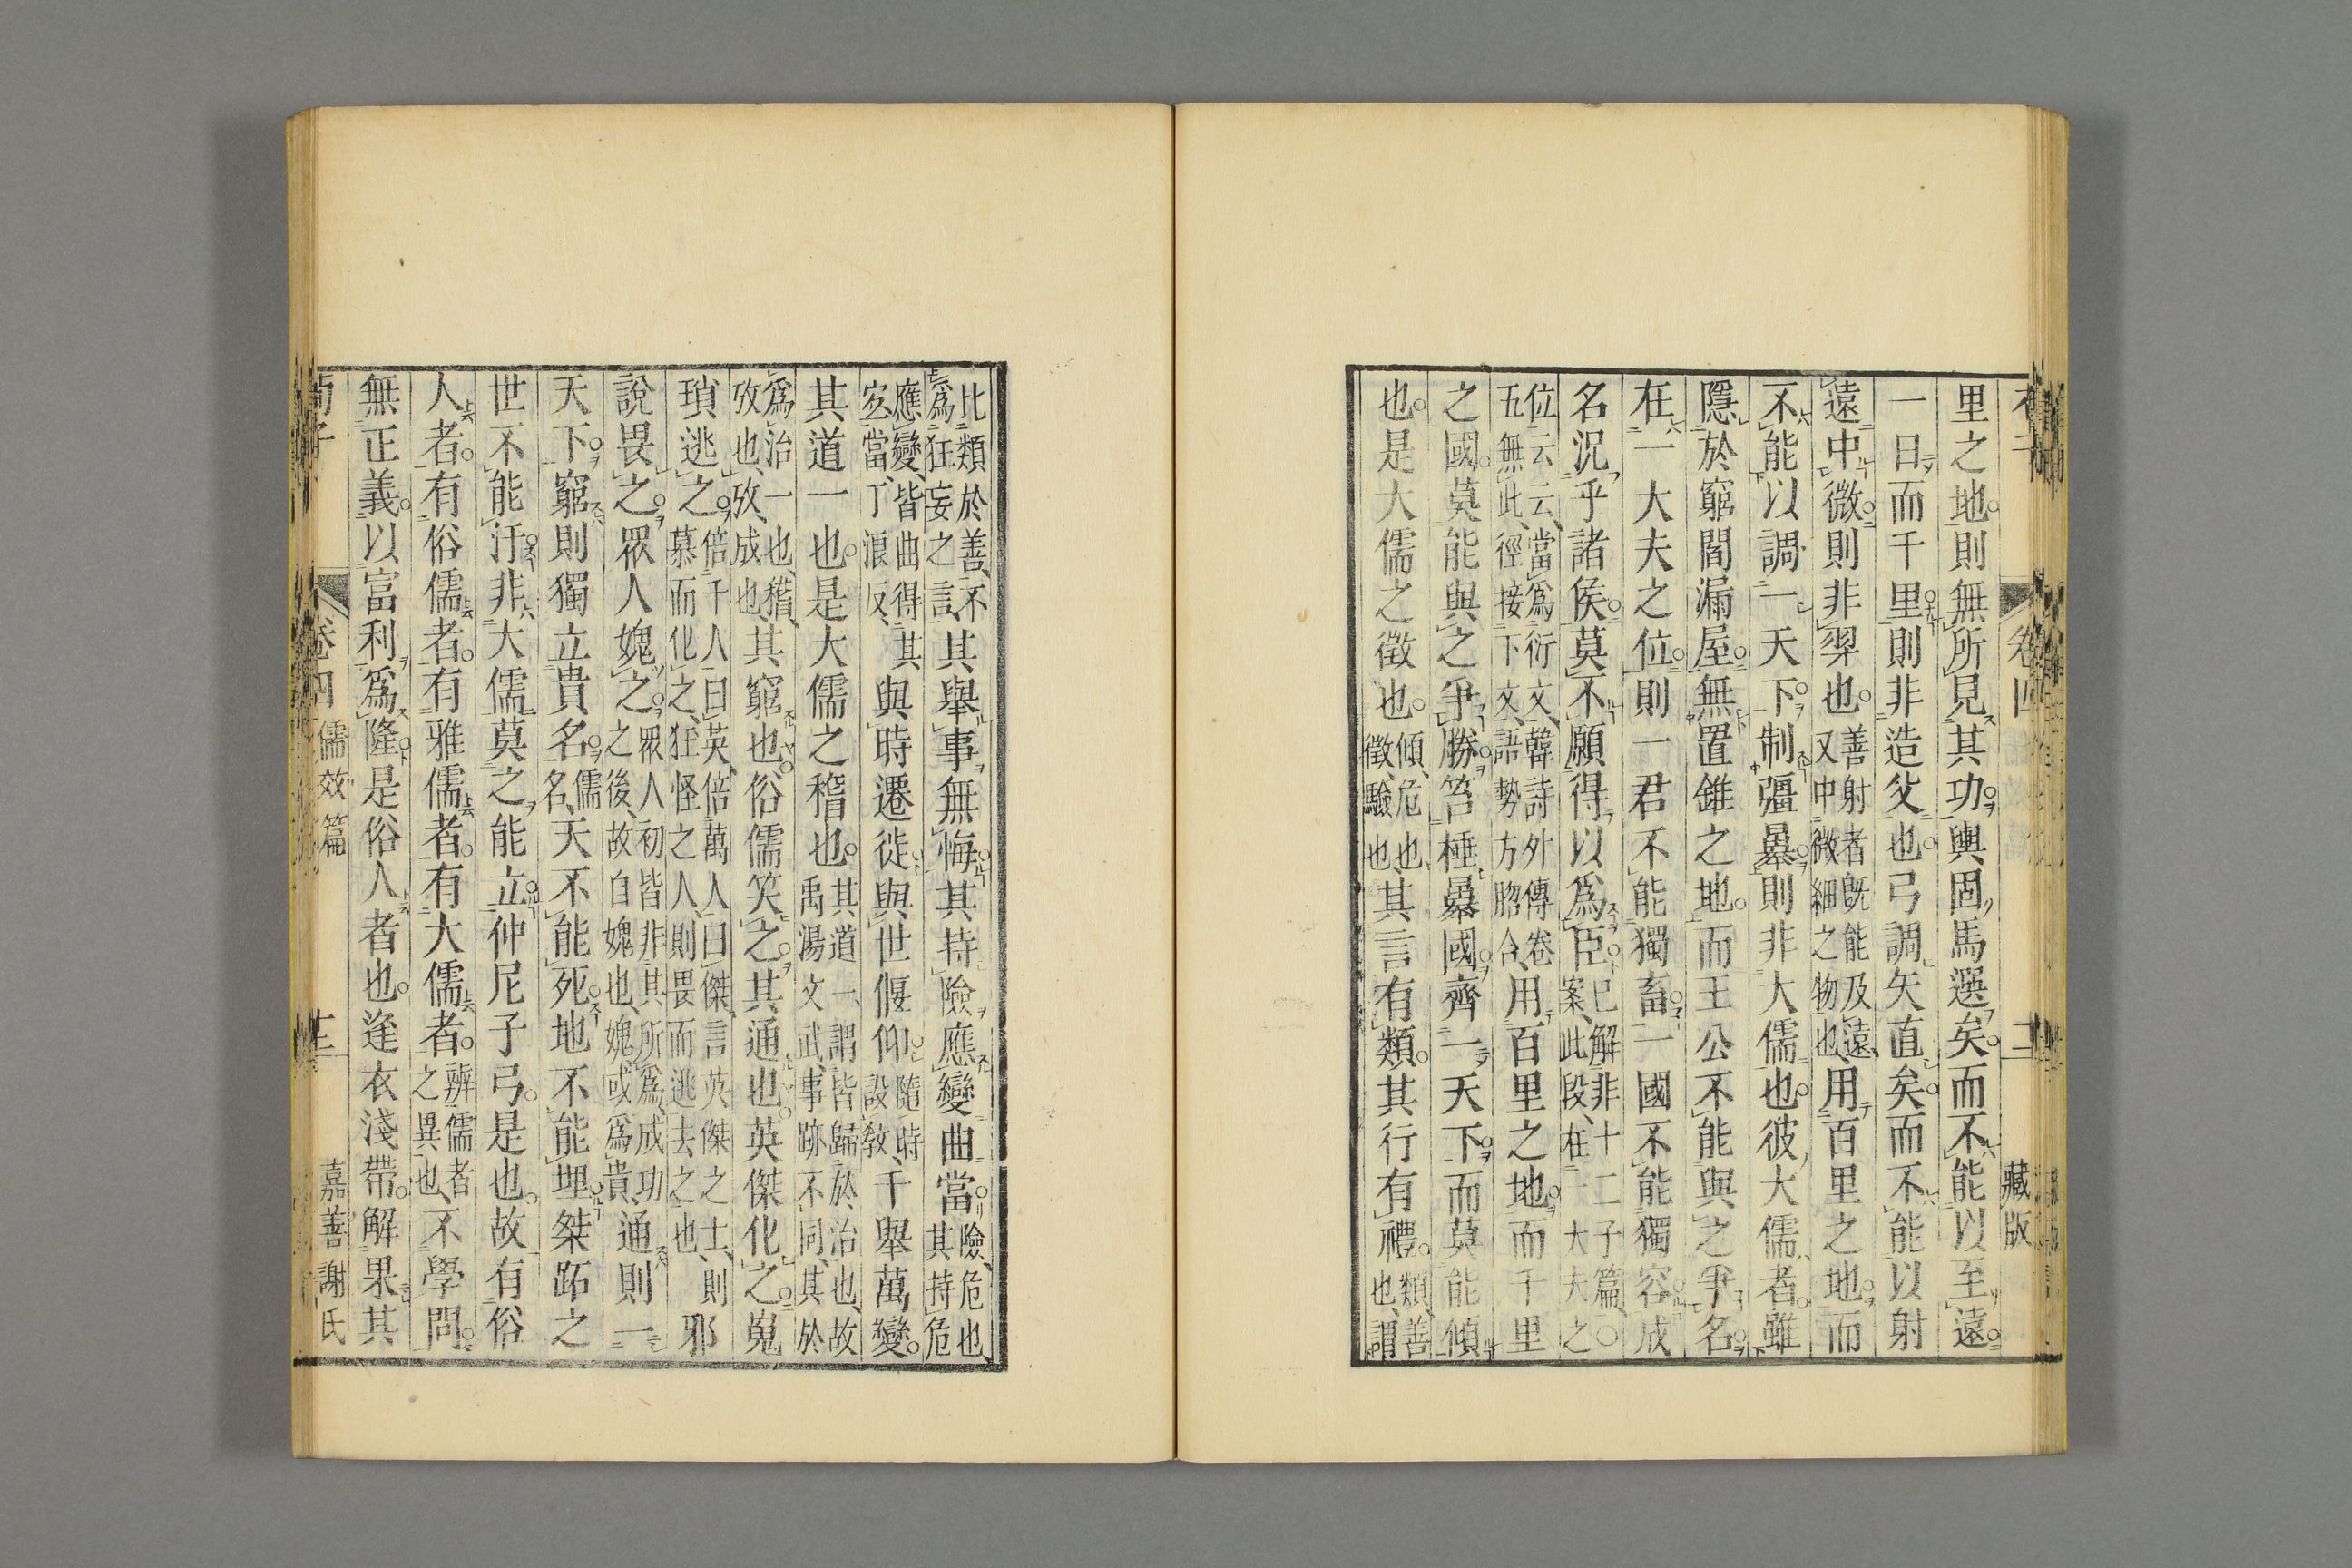 里之地。則無所見其功。輿固馬選矣。而不能以至遠。
一日而千里。則非造父也。弓調矢直矣。而不能以射
遠中微。則非羿也。善射者既能及遠、又中微細之物也、用百里之地。而
不能以調一天下。制彊暴。則非大儒也。彼大儒者。雖
隱於窮閻漏屋。無置錐之地。而王公不能與之爭名。
在一大夫之位。則一君不能獨畜。一國不能獨容。成
名況乎諸侯。莫不願得以爲臣。已解非十二子篇、〇案、此段、在一大夫之
位云云、當爲衍文、韓詩外傳卷五無此、徑接下文、語勢方脗合、用百里之地。而千里
之國。莫能與之爭勝。笞棰暴國。齊一天下。而莫能傾
也。是大儒之徵也。傾、危也、徵、驗也、其言有類。其行有禮。類、善也、謂
卷四
藏版
比類於善、不爲狂妄之言、其舉事無悔。其持險應變曲當。險、危也、其持危
應變、皆曲得其宜當、丁浪反、與時遷徙。與世偃仰。隨時設教、千舉萬變。
其道一也。是大儒之稽也。其道一、謂皆歸於治也、故禹湯文武、事跡不同、其於
爲治一也、稽、攷也、攷、成也、其窮也。俗儒笑之。其通也。英傑化之。嵬
瑣逃之。倍千人曰英、倍萬人曰傑、言英傑之士、則慕而化之、狂怪之人、則畏而逃去之也、邪
說畏之。眾人媿之。眾人初皆非其所爲、成功之後、故自媿也、媿或爲貴、通則一
天下。窮則獨立貴名。儒名、天不能死。地不能埋。桀跖之
世不能汙。非大儒莫之能立。仲尼子弓。是也。故有俗
人者。有俗儒者。有雅儒者。有大儒者。辨儒者之異也、不學問。
無正義。以富利爲隆。是俗人者也。逢衣淺帶。解果其
荀子
卷四
儒效篇
嘉善謝氏